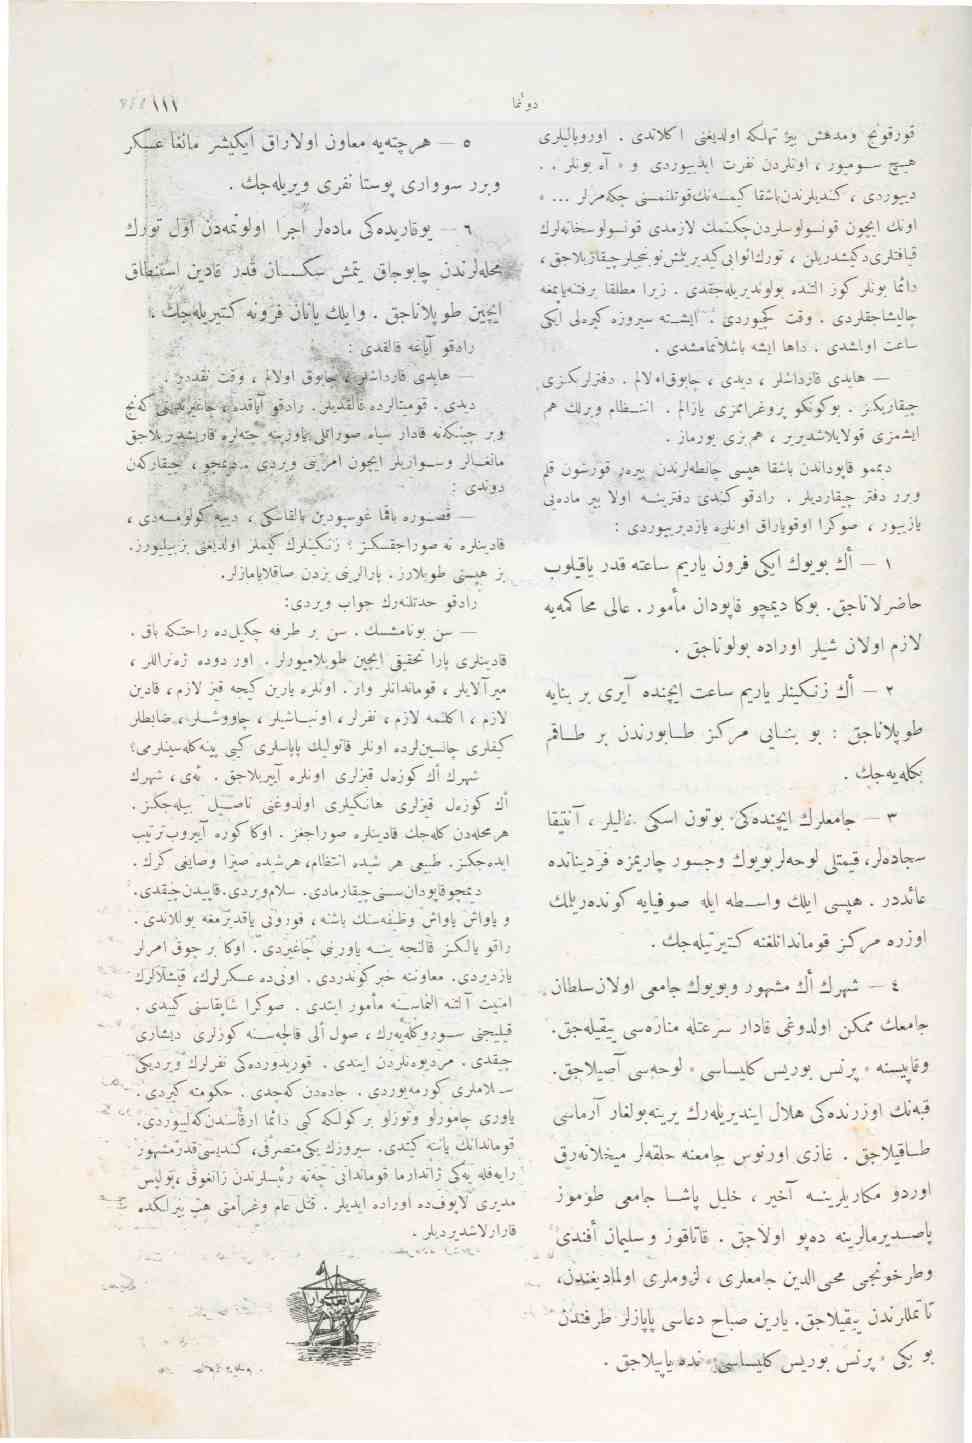 دونما
١١١
قورقونج ومدهش بر تهلكه اولديغنى اكلاندى . اوروپاليلرى
هيچ سومیور ، اونلردن نفرت ايدييوردى و « آه بونلر . .
دييوردى ، كنديلرندن باشقا كيمسه‌نك قوتلنمسنى چكه‌مزلر ... »
اونك ايچون قونسولوسلردن چكنمك لازمدى قونسولوسخانه‌لرك
قيافتلرى دكيشديريلن ، تورك اثوابى كيديريلمش نوبتجيلر چيقاريلاجق ،
دائما بونلر كوز التنده بولونديريله‌جقدى . زيرا مطلقا برفتنه ياپمغه
چاليشاجقلردى . وقت كچيوردى . ايشته سيروزه كيره‌لى ايكى
ساعت اولمشدى . داها ايشه باشلانمامشدى .
— هايدى قارداشلر ، ديدى ، چابوق اولالم . دفترلريكزى
چيقاريكز . بوكونكو پروغرامزى يازالم . انتظام ويرلك هم
ايشمزى قولايلاشديرير ، هم بزى يورماز .
ديمچو قاپوداندن باشقا هپسى چانطه‌لرندن بيره‌ر قورشون قلم
وبرر دفتر چيقارديلر . رادقو كندى دفترينه اولا بير ماده‌يى
يازييور ، صوكرا اوقوياراق اونلره يازديرييوردى :
١ — أك بويوك ايكى فرون ياريم ساعته قدر ياقيلوب
حاضرلاناجق. بوكا ديمچو قاپودان مأمور. عالى محاكمه‌يه
لازم اولان شيلر اوراده بولوناجق .
٢ — أك زنكينلر ياريم ساعت ايچنده آيرى بر بنايه
طوپلاناجق : بو بنايى مركز طابورندن بر طاقم
بكله‌يه‌جك .
٣ — جامعلرك ايچنده‌كى بوتون اسكى خاليلر ، آنتيقا
سجاده‌لر، قيمتلى لوحه‌لر بويوك وجسور چاريمزه فرديناده
عائددر . هپسى ايلك واسطه ايله صوفيايه كونده‌ريلمك
اوزره مركز قوماندانلغنه كتيرتيله‌جك .
٤ — شهرك أك مشهور وبويوك جامعى اولان سلطان
جامعك ممكن اولدوغى قادار سرعتله مناره‌سى ييقيله‌جق.
وقاپيسنه « پرنس بوريس كليساسى » لوحه‌سى آصيلاجق.
قبه‌نك اوزرنده‌كى هلال اينديريله‌رك يرينه بولغار آرماسى
طاقيلاجق . غازى اورنوس جامعنه حلقه‌لر ميخلانه‌رق
اوردو مكاريلرينه آخير ، خليل پاشا جامعى طوموز
پاصديرمالرينه ده‌پو اولاجق . قاتاقوز وسليمان أفندى
وطرخونجى محى الدين جامعلرى ، لزوملرى اولماديغندن،
تا تمللرندن ييقيلاجق. يارين صباح دعاسى پاپازلر طرفندن
بو يكى « پرنس بوريس كليساسى » نده ياپيلاجق .
٥ — هر چته‌يه معاون اولاراق ايكيشر مانغا عسكر
وبرر سوارى پوستا نفرى ويريله‌جك .
٦ — يوقاريده‌كى ماده‌لر اجرا اولونمه‌دن اول تورك
محله‌لرندن چابوجاق يتمش سكسان قدر قادين استنطاق
ايچين طوپلاناجق . وايلك يانان فرونه كتيريله‌جك .
رادقو آياغه قالقدى :
— هايدى قارداشلر ، چابوق اولالم ، وقت نقددر .
ديدى . قوميتالرده قالقديلر. رادقو آياقده ، كنج
وبر قادار سياه صوراتلى ياورينه چته‌لره قاريشديريلاجق
مانغالر وسواريلر ايچون امرينى ويردى . ديمچو ، چيقاركن
دوندى :
— قصوره باقما غوسپودين بالقانسكى ، دييه كولومسه‌دى ،
قادينلره نه صوراجقسكز ؟ زنكينلرك كيملر اولديغنى بز بيليورز.
بز هپسنى طوپلارز. پارالرينى بزدن صاقلايامازلر.
رادقو حدتلنه‌رك جواب ويردى:
— سن بونامشسك . سن بر طرفه چكيل ده راحتكه باق .
قادينلرى پارا تحقيقى ايچين طوپلاميورلر . اور دوده ژه‌نراللر ،
ميرآلايلر ، قوماندانلر وار . اونلره يارين كيجه قيز لازم ، قادين
لازم ، اكلنمه لازم ، نفرلر ، اونباشيلر ، چاووشلر ، ضابطلر
كيفلرى چانسين‌لرده اونلر قاتوليك پاپاسلرى كبى پينه‌كله‌سينلرمى؟
شهرك أك كوزه‌ل قيزلرى اونلره آيريلاجق . ئه‌ى ، شهرك
أك كوزه‌ل قيزلرى هانكيلرى اولدوغنى ناصيل بيله‌جكز .
هر محله‌دن كله‌جك قادينلره صوراجغز. اوكا كوره آييروب ترتيب
ايده‌جكز. طبيعى هر شيده انتظام، هرشيده صيرا وصايغى كرك.
ديمچو قاپودان سسنى چيقارمادى. سلام ويردى. قاپيدن چيقدى.
و ياواش ياواش وظيفه‌سنك باشنه ، فورونى ياقديرمغه يوللاندى .
رادقو يالكز قالنجه ينه ياورنى چاغيردى . اوكا بر چوق امرلر
يازديردى. معاوننه خبر كوندردى. اونى ده عسكرلرك، قيشلالرك
امنيت آلتنه النماسنه مأمور ايتدى . صوكرا شاپقاسنى كيدى .
قيليجنى سوروكله‌يه‌رك ، صول ألى قالچه‌سنه كوزلرى ديشارى
چيقدى. مرديوه‌نلردن ايندى. قوريدورده‌كى نفرلرك ويرديكى
سلاملرى كورمه‌يوردى . جاده‌دن كه‌چدى . حكومته كيردى .
ياورى چامورلو وتوزلو بر كولكه كبى دائما ارقاسندن كه‌لييوردى.
قوماندانك ياننه كيتدى. سيروزك يكى متصرفى، كنديسى قدر مشهور
ژاندارما قوماندانى چته رئيسلرندن زانغوف ، پوليس
مديرى لايوف‌ده اوراده ايديلر . قتل عام وغرامتى هپ بيرلكده
قارارلاشديرديلر .